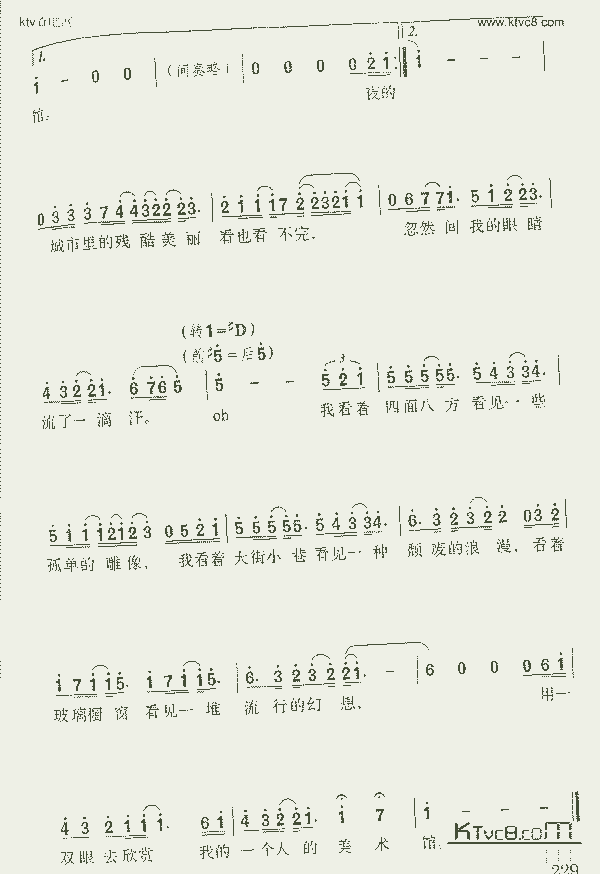 www.ktvc8.com
1. 2.
1 - 0 0 | (间奏略) | 0 0 0 0 2 1 :|| 1 - - - |
馆。 夜的
0 3 3 3 7 4 4 3 2 2 2 3. | 2 1 1 1 1 7 2 2 3 2 1 1 | 0 6 7 7 1. 5 1 2 2 3. |
城市里的残 酷美丽 看也看不完, 忽然间我的眼睛
(转1=♯D)
(前♯5=后5)
4 3 2 2 1. 6 7 6 5 | 5 - - 5 2 1 | 5 5 5 5 5. 5 4 3 3 4. |
流了一滴汗。 oh 我看着 四面八方 看见一些
5 1 1 1 2 1 2 3 0 5 2 1 | 5 5 5 5 5. 5 4 3 3 4. | 6. 3 2 3 2 2 0 3 2 |
孤单的雕像, 我看着 大街小巷看见一种 颓废的浪漫, 看着
1 7 1 1 5. 1 7 1 1 5. | 6. 3 2 3 2 2 1. - | 6 0 0 0 6 1 |
玻璃橱窗 看见一堆 流行的幻想, 用一
4 3 2 1 1 1. 6 1 | 4 3 2 2 1. 1 7 | 1 - - - ||
双眼去欣赏 我的 一个人的美术 馆。
KTvc8.com
229